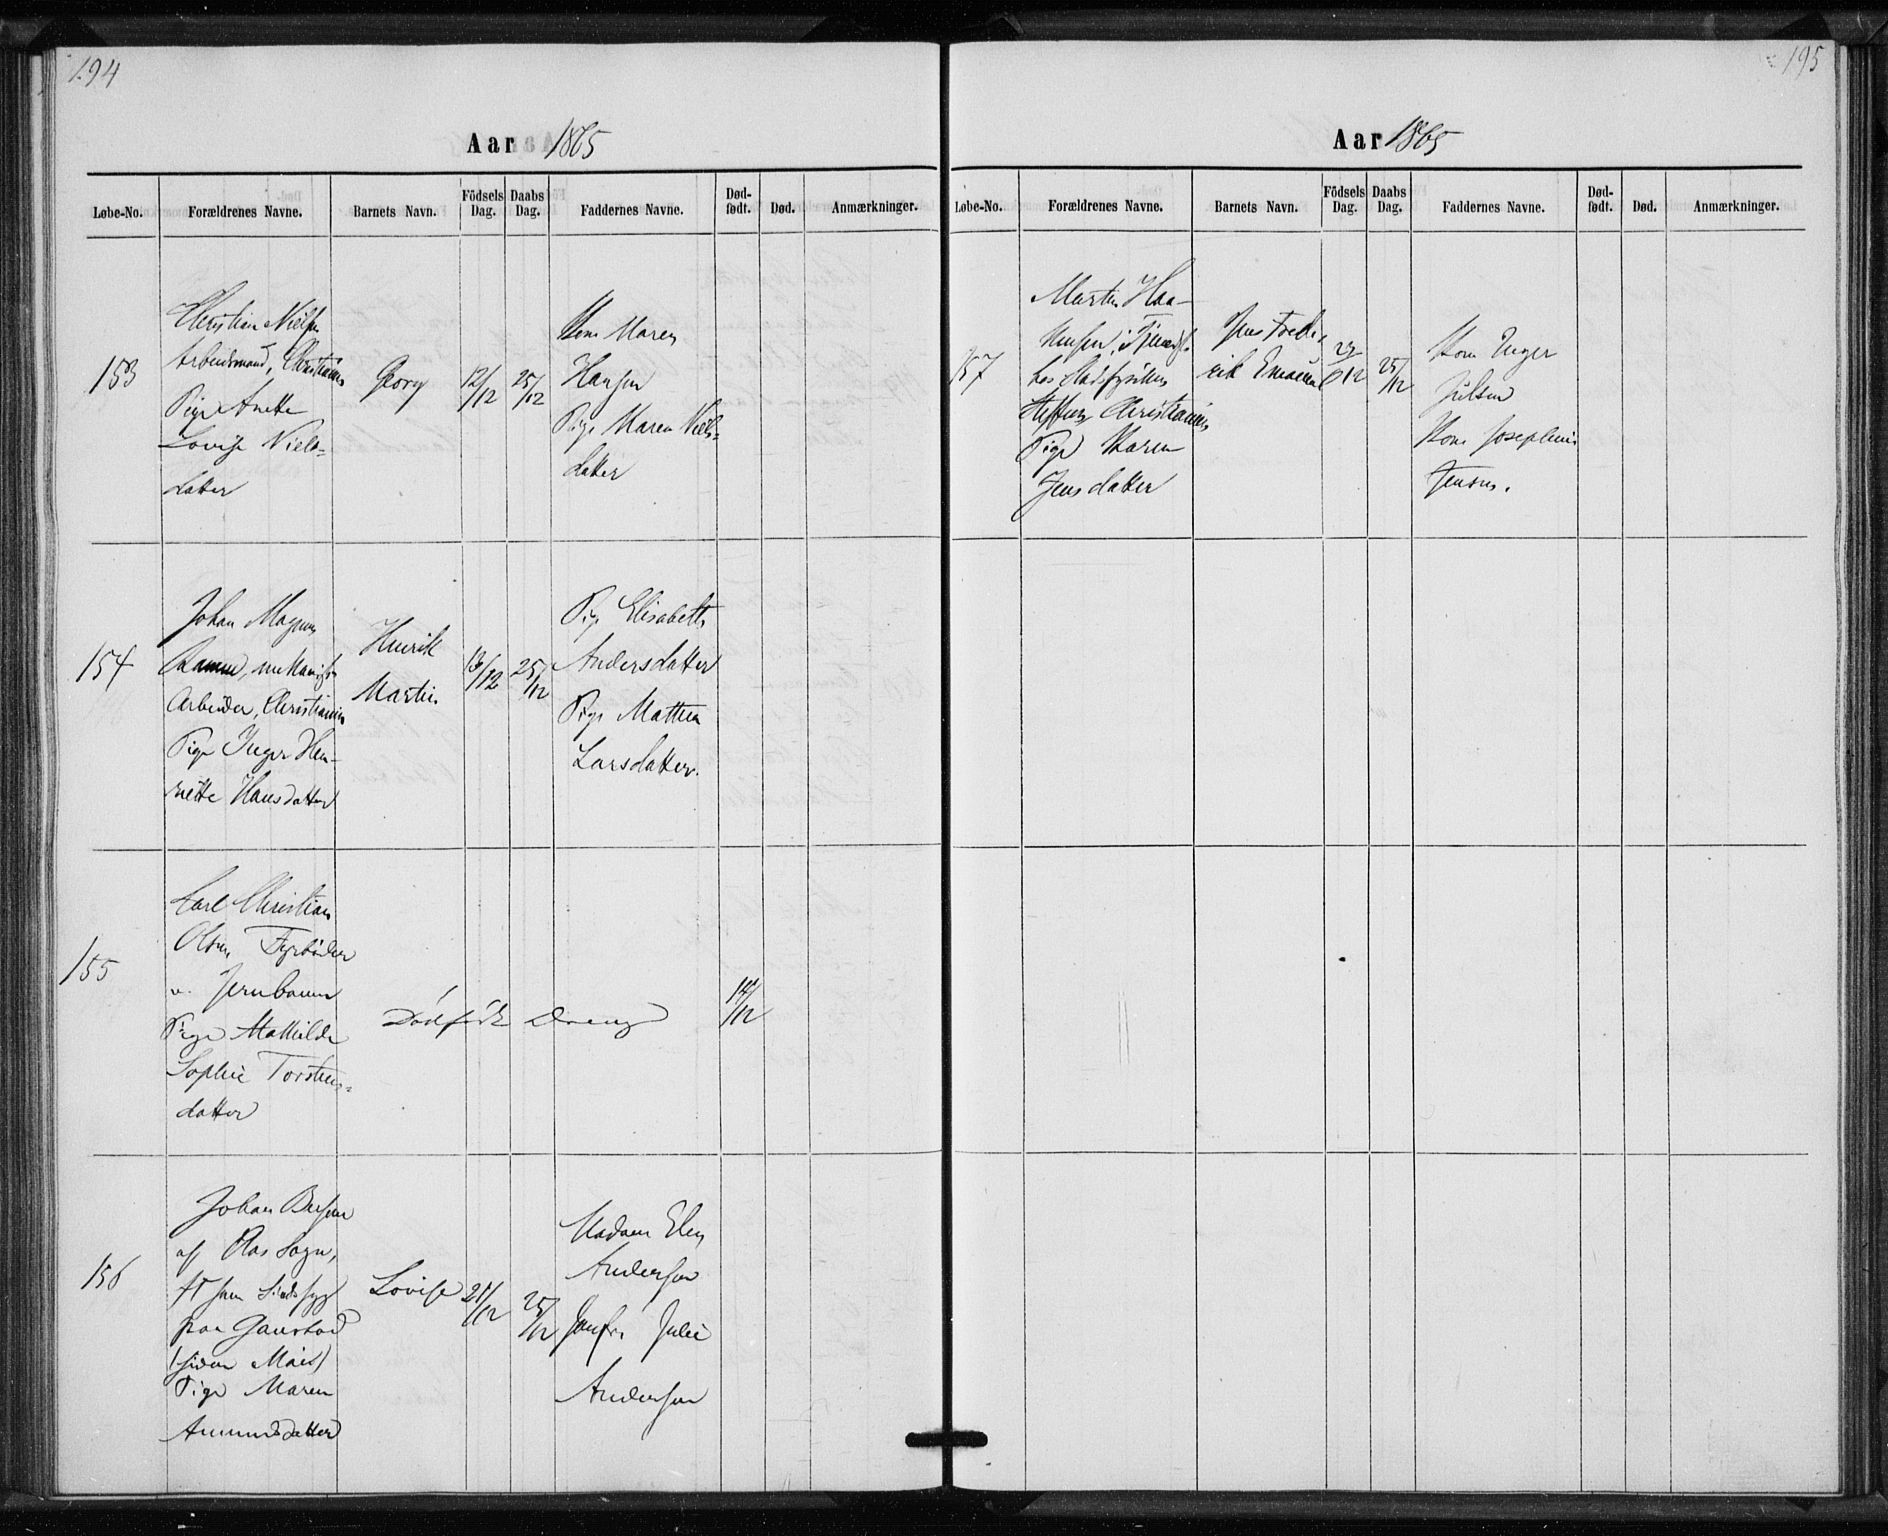 194
Aar 1865
Løbe-No. Forældrenes Navne. Barnets Navn. Födsels Dag. Daabs Dag. Faddernes Navne. Død-født. Død. Anmærkninger.
153
Christian Nielsen
Arbeidsmand, Christiania
Pige Anette
Lovise Niels=
datter
Georg
12/12
25/12
Kone Maren
Hansen
Pige Maren Niels=
datter
154
Johan Magnus
mekanisk
Arbeider, Christiania
Pige Inger Hen-
riette Hansdatter
Henrik
Martin
13/12
25/12
Pige Elisabeth
Andersdatter
Pige Mathea
Larsdatter.
155
Carl Christian
Olsen, Fyrbøder
v. Jernbanen
Pige Mathilde
Sophie Torstens=
datter
Dødfødt Dreng
14/12
156
Johan
af Aas Sogn,
Sindssyg
paa Gaustad
(siden Mais)
Pige Maren
Amundsdatter
Lovise
21/12
25/12
Madam Elen
Andersen
Jomfru Julie
Andersen
195
Aar 1865
Løbe-No. Forældrenes Navne. Barnets Navn. Födsels Dag. Daabs Dag. Faddernes Navne. Død-født. Død. Anmærkninger.
157
Martin Haa-
kensen, Tjener
hos Stadsfysikus
Steffens Christiania
Pige Karen
Jensdatter
Jens Frede-
rik Emanuel
25/12
Kone Inger
Julsen
Kone Josephine
Jensen.